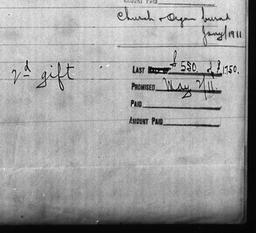 AMOUNT PAID
Church & Organ burnt
Jany/1911
2d gift
LAST £ 550. & £1750.
PROMISED May 2/11.
PAID
AMOUNT PAID